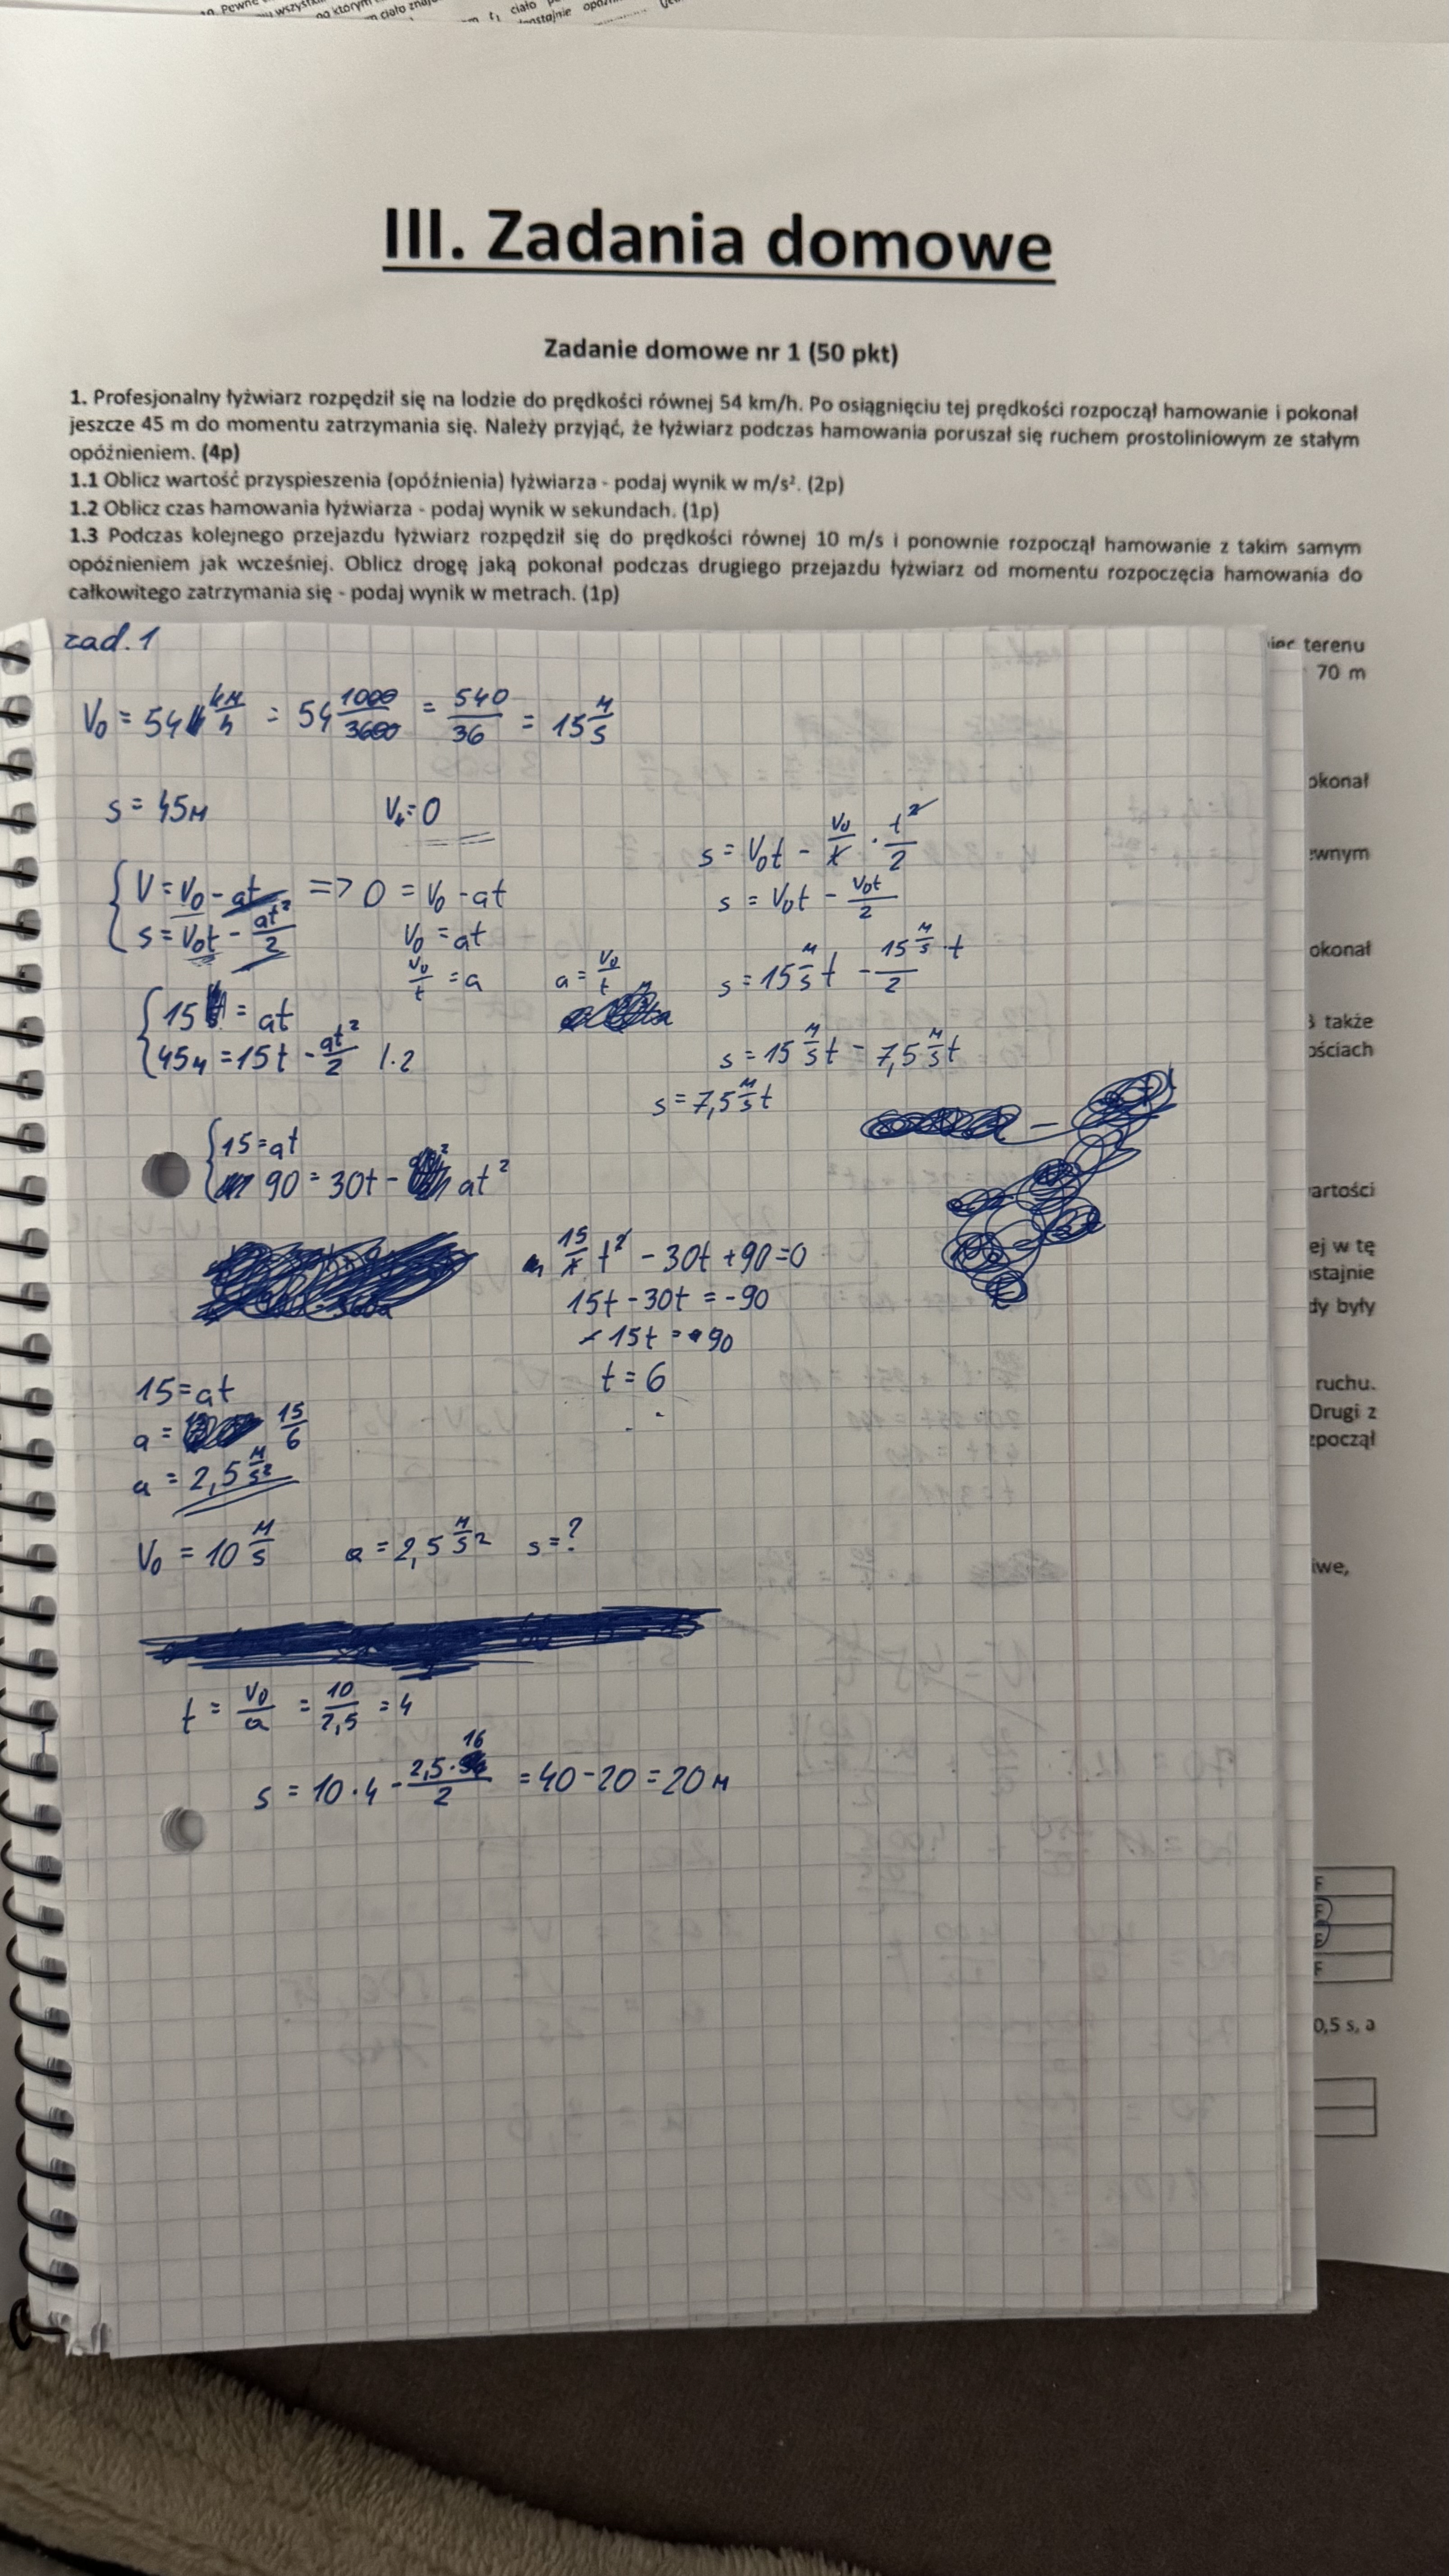 Pewne
wszystki
po którym
ciało
t₁ ciało
III. Zadania domowe
Zadanie domowe nr 1 (50 pkt)
1. Profesjonalny łyżwiarz rozpędził się na lodzie do prędkości równej 54 km/h. Po osiągnięciu tej prędkości rozpoczął hamowanie i pokonał
jeszcze 45 m do momentu zatrzymania się. Należy przyjąć, że łyżwiarz podczas hamowania poruszał się ruchem prostoliniowym ze stałym
opóźnieniem. (4p)
1.1 Oblicz wartość przyspieszenia (opóźnienia) łyżwiarza - podaj wynik w m/s². (2p)
1.2 Oblicz czas hamowania łyżwiarza - podaj wynik w sekundach. (1p)
1.3 Podczas kolejnego przejazdu łyżwiarz rozpędził się do prędkości równej 10 m/s i ponownie rozpoczął hamowanie z takim samym
opóźnieniem jak wcześniej. Oblicz drogę jaką pokonał podczas drugiego przejazdu łyżwiarz od momentu rozpoczęcia hamowania do
całkowitego zatrzymania się - podaj wynik w metrach. (1p)
zad. 1
V₀ = 54 км/h = 54 1000/3600 = 540/36 = 15 м/s
s = 45м Vₖ=0
{ V = V₀ - at => 0 = V₀ - at
s = V₀t - at²/2 V₀ = at
V₀/t = a a = V₀/t
{ 15 = at
45м = 15t - at²/2 |·2
{ 15 = at
90 = 30t - at²
s = V₀t - V₀/t · t²/2
s = V₀t - V₀t/2
s = 15 м/s t - 15 м/s t/2
s = 15 м/s t - 7,5 м/s t
s = 7,5 м/s t
15/t t² - 30t + 90 = 0
15t - 30t = -90
-15t = -90
t = 6
15 = at
a = 15/6
a = 2,5 м/s²
V₀ = 10 м/s a = 2,5 м/s² s = ?
t = V₀/a = 10/2,5 = 4
s = 10·4 - 2,5·16/2 = 40 - 20 = 20 м
terenu
70 m
okonał
ewnym
okonał
także
ościach
artości
ej w tę
stajnie
dy były
ruchu.
Drugi z
zpoczął
iwe,
F
F
F
F
0,5 s, a